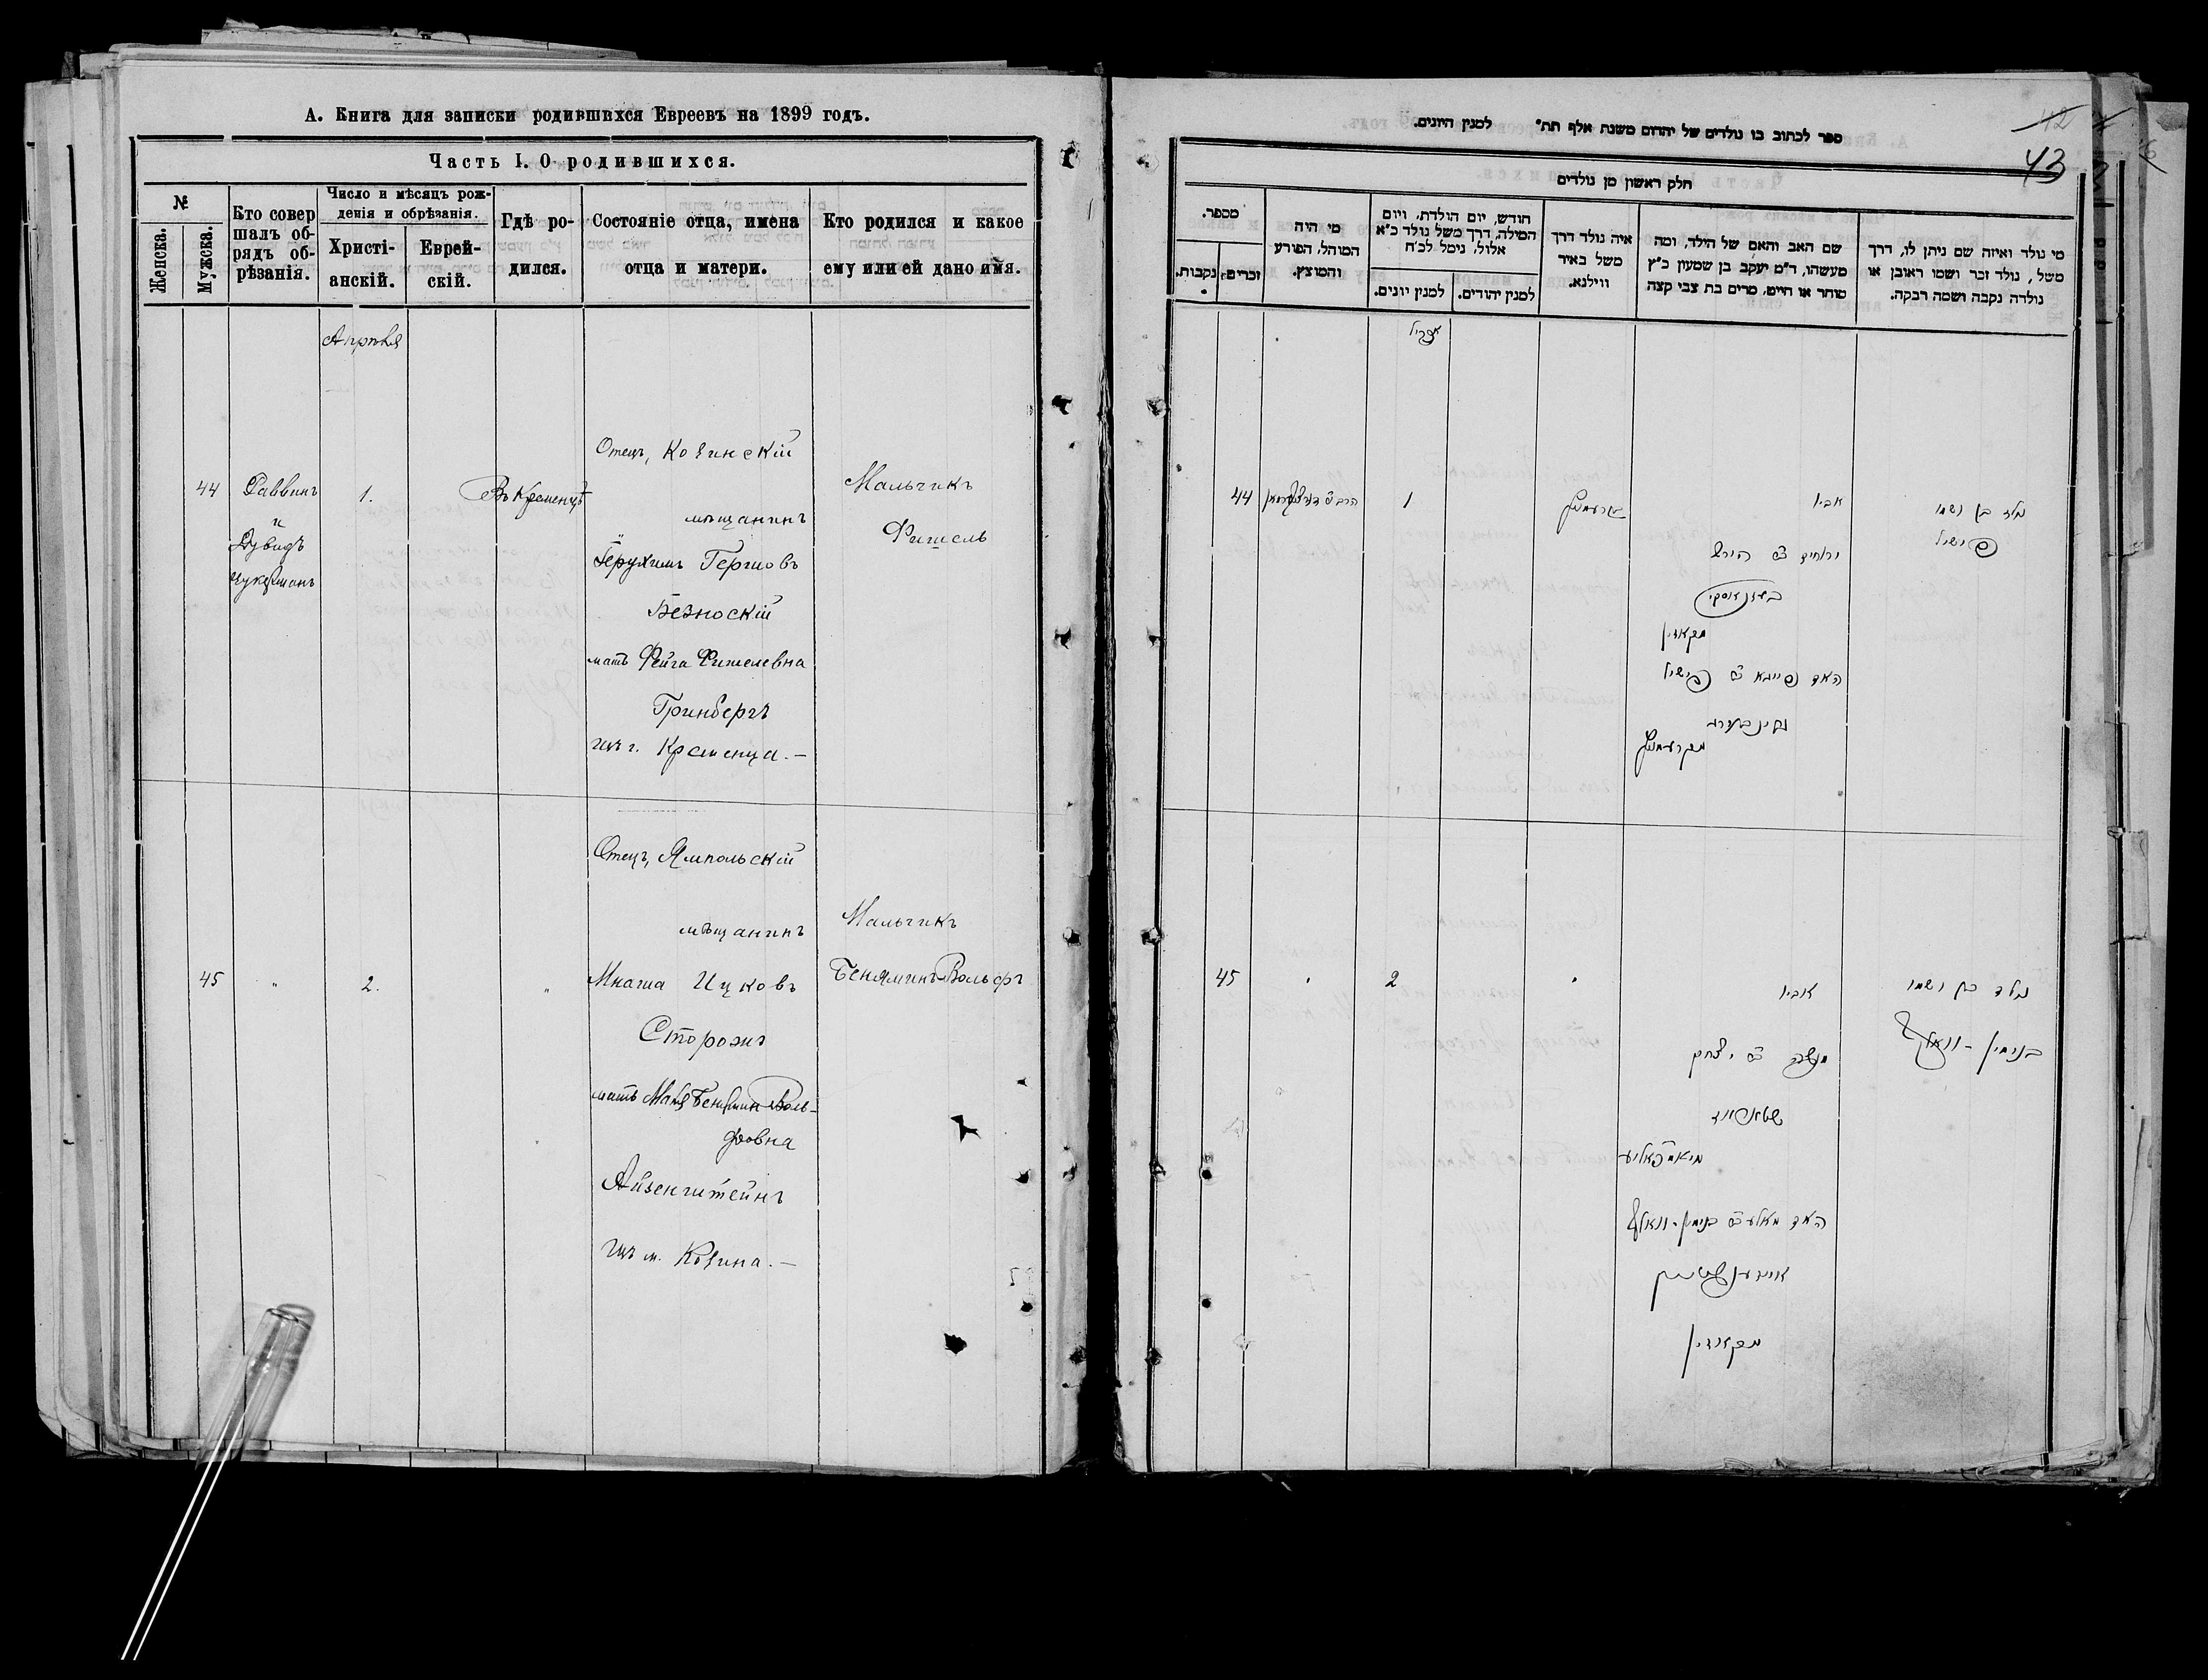 А. Книга для записки родившихся Евреевъ на 1899 годъ.
Часть I. О родившихся.
№
Женска.
Мужска.
Кто совер
шалъ об-
рядъ об-
рѣзанія.
Число и мѣсяцъ рож-
денія и обрѣзанія.
Христі-
анскій.
Еврей-
скій.
Гдѣ ро-
дился.
Состояніе отца, имена
отца и матери.
Кто родился и какое
ему или ей дано имя.
Апрѣля
44
Раввинъ
и
Дувидъ
Цукерманъ
1.
Въ Кременцѣ
Отецъ, Козинскій
мѣщанинъ
Герухимъ Гершовъ
Безноскій
мать Фейга Фишелевна
Гринбергъ
изъ г. Кременца.—
Мальчикъ
Фишель
45
"
2.
"
Отецъ, Ямпольскій
мѣщанинъ
Мнаша Ицковъ
Сторожъ
мать Маня Беніямин Воль-
фовна
Айзенштейнъ
изъ м. Козина.—
Мальчикъ
Беняминъ-Вольфъ
ספר לכתוב בו נולדים של יהדום משנת אלף תת״ למנין היונים.
42
43
חלק ראשון מן נולדים
מי נולד ואיזה שם ניתן לו, דרך
משל, נולד זכר ושמו ראובן או
נולדה נקבה ושמה רבקה.
שם האב והאם של הילד, ומה
מעשהו, ד״מ יעקב בן שמעון כ״ץ
סוחר או חייט, מרים בת צבי קצה
איה נולד דרך
משל באיר
ווילנא.
חודש, יום הולדת, ויום
המילה, דרך משל נולד כ״א
אלול, נימל לכ״ח
למנין יהודים.
למנין יונים.
מי היה
המוהל, הפורע
והמוצץ.
מספר.
זכרים.
נקבות.
אפריל
נולד בן ושמו
פישיל
אביו
ירוחים ב״ הירש
מקאזין
האם פייגא ב״ פישיל
גרינבערג
מקרעמניץ
קרעמניץ
1
44
נולד בן ושמו
בנימין - וואלף
אביו
מנשה ב״ יצחק
מיאמפאליע
האם מאניע ב״ בנימין-וואלף
אייזענשטיין
מקאזין
2
45